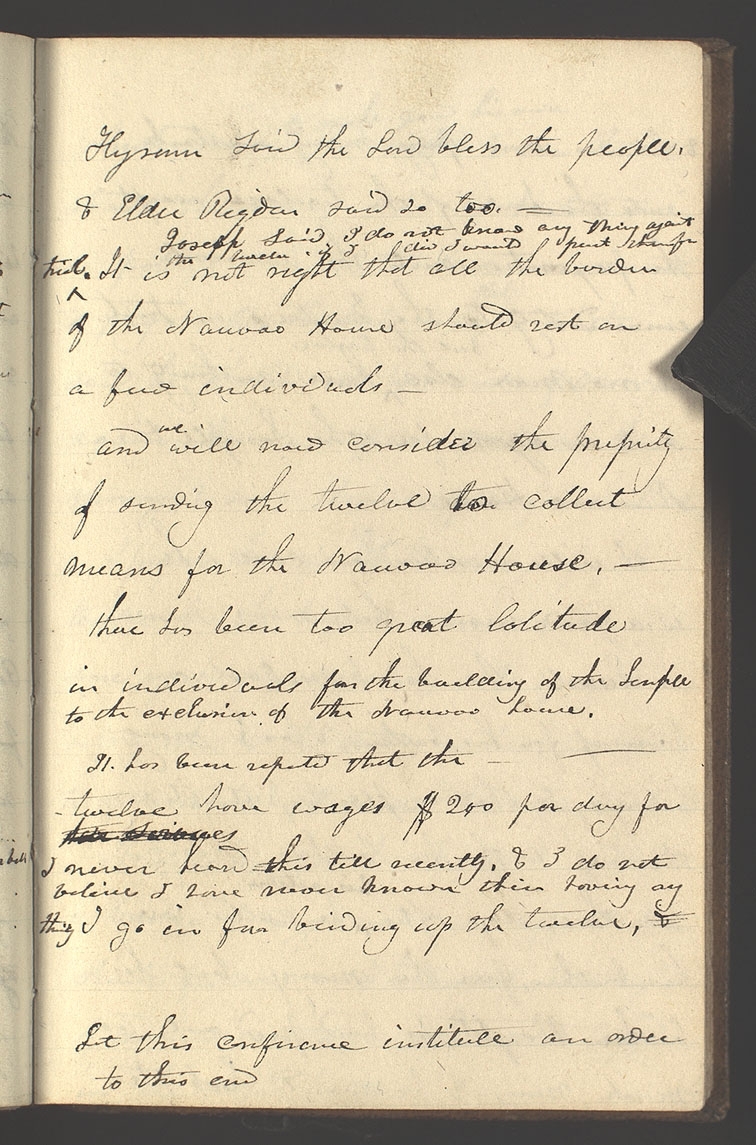 Hyrum said the Lord bless the people.
& Elder Rigdon said so too. —
Joseph said, I do not know any thing against
the twelve. if I did I would present them for
trial. It is not right that all the burden
of the Nauvoo House should rest on
a few individuals —
and we will now consider the propriety
of sending the twelve to collect
means for the Nauvoo House. —
there has been too great latitude
in individuals for the building of the Temple
to the exclusion of the Nauvoo house.
It has been reported that the —
twelve have wages $ 200 per day for
their services
I never heard this till recently, & I do not
believe I have never known their having any
thing I go in for binding up the twelve, &
Let this conference institute an order
to this end